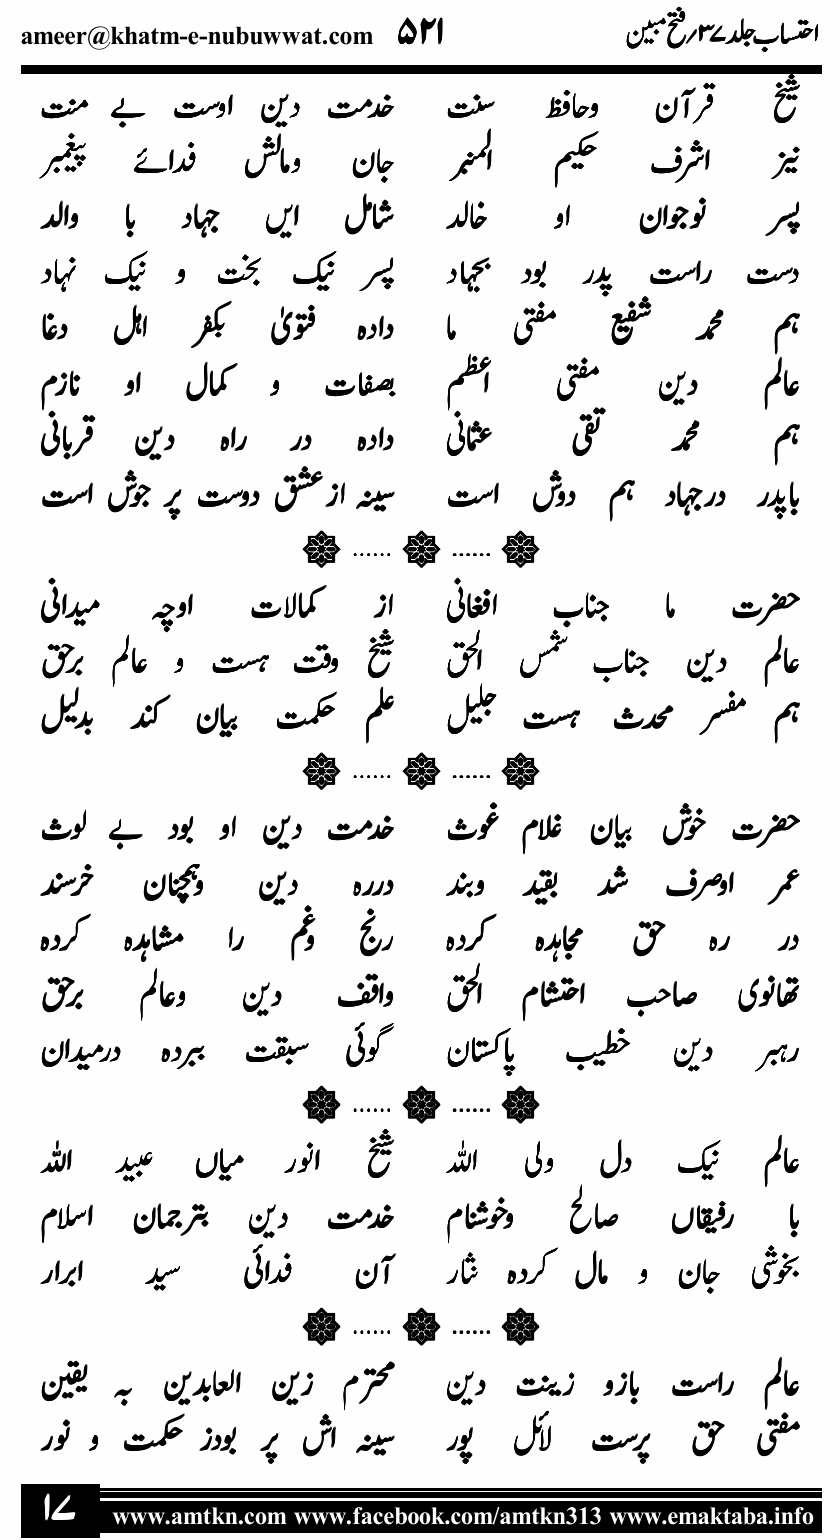 احتساب جلد ۳۷؍ فتح مبین ۵۲۱ ameer@khatm-e-nubuwwat.com
شیخ قرآن وحافظ سنت خدمت دین اوست بے منت
نیز اشرف حکیم المنبر جان ومالش فدائے پیغمبر
پسر نوجوان او خالد شامل ایں جہاد با والد
دست راست پدر بود بجہاد پسر نیک بخت و نیک نہاد
ہم محمد شفیع مفتی ما دادہ فتویٰ بکفر اہل دغا
عالم دین مفتی اعظم بصفات و کمال او نازم
ہم محمد تقی عثمانی دادہ در راہ دین قربانی
باپدر درجہاد ہم دوش است سینہ ازعشق دوست پر جوش است
...... ......
حضرت ما جناب افغانی از کمالات اوچہ میدانی
عالم دین جناب شمس الحق شیخ وقت ہست و عالم برحق
ہم مفسر محدث ہست جلیل علم حکمت بیان کند بدلیل
...... ......
حضرت خوش بیان غلام غوث خدمت دین او بود بے لوث
عمر اوصرف شد بقید وبند دررہ دین وہمچنان خرسند
در رہ حق مجاہدہ کردہ رنج وغم را مشاہدہ کردہ
تھانوی صاحب احتشام الحق واقف دین وعالم برحق
رہبر دین خطیب پاکستان گوئی سبقت ببردہ درمیدان
...... ......
عالم نیک دل ولی اللہ شیخ انور میاں عبید اللہ
با رفیقاں صالح وخوشنام خدمت دین بترجمان اسلام
بخوشی جان و مال کردہ نثار آن فدائی سید ابرار
...... ......
عالم راست بازو زینت دین محترم زین العابدین بہ یقین
مفتی حق پرست لائل پور سینہ اش پر بودز حکمت و نور
۱۷ www.amtkn.com www.facebook.com/amtkn313 www.emaktaba.info